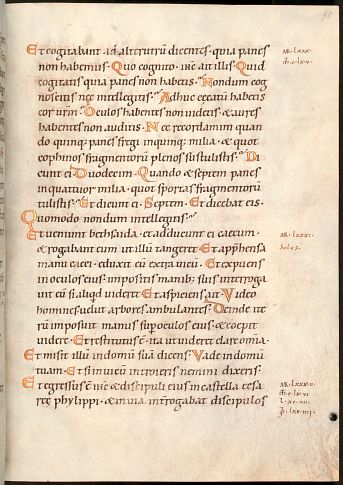 Et cogitabant ad alterutrũ dicentes · quia panes
non habemus · Quo cognito · ihc ait illis · Quid
cogitatis quia panes non habetis · Nondum cog
noscitis nec intellegitis · Adhuc cecatũ habetis
cor urm̃ · Oculos habentes non videtis · & aures
habentes non auditis · Nec recordamini quan
do quinq; panes fregi inquinq; milia · & quot
cophinos fragmentorũ plenos sustulistis · Di
cunt ei · Duodecim · Quando & septem panes
in quattuor milia · quot sportas fragmentorũ
tulistis · Et dicunt ei · Septem · Et dicebat eis ·
Quomodo nondum intellegitis ·
Et ueniunt bethsaida · et adducunt ei caecum ·
& rogabant eum ut illũ tangeret · Et app̃hensa
manu caeci · eduxit eũ extra uicũ · Et expuens
in oculos eius · impositis manib; suis interroga
uit eũ si aliqd uideret · Et aspiciens ait · Video
homines uelut arbores ambulantes · Deinde ite
rũ imposuit manus sup oculos eius · & coepit
uidere · Et restitutus ẽ · ita ut uideret clare omnia ·
Et misit illũ indomũ suã dicens · Vade indomũ
tuam · Et si in uicũ introieris nemini dixeris ·
Et egressus ẽ ihc & discipuli eius in castella cesa
reę philippi · & in uia int̃rogabat discipulos
MR · LXXX ·
MR · LXXXI ·
Solus ·
MR · LXXXII ·